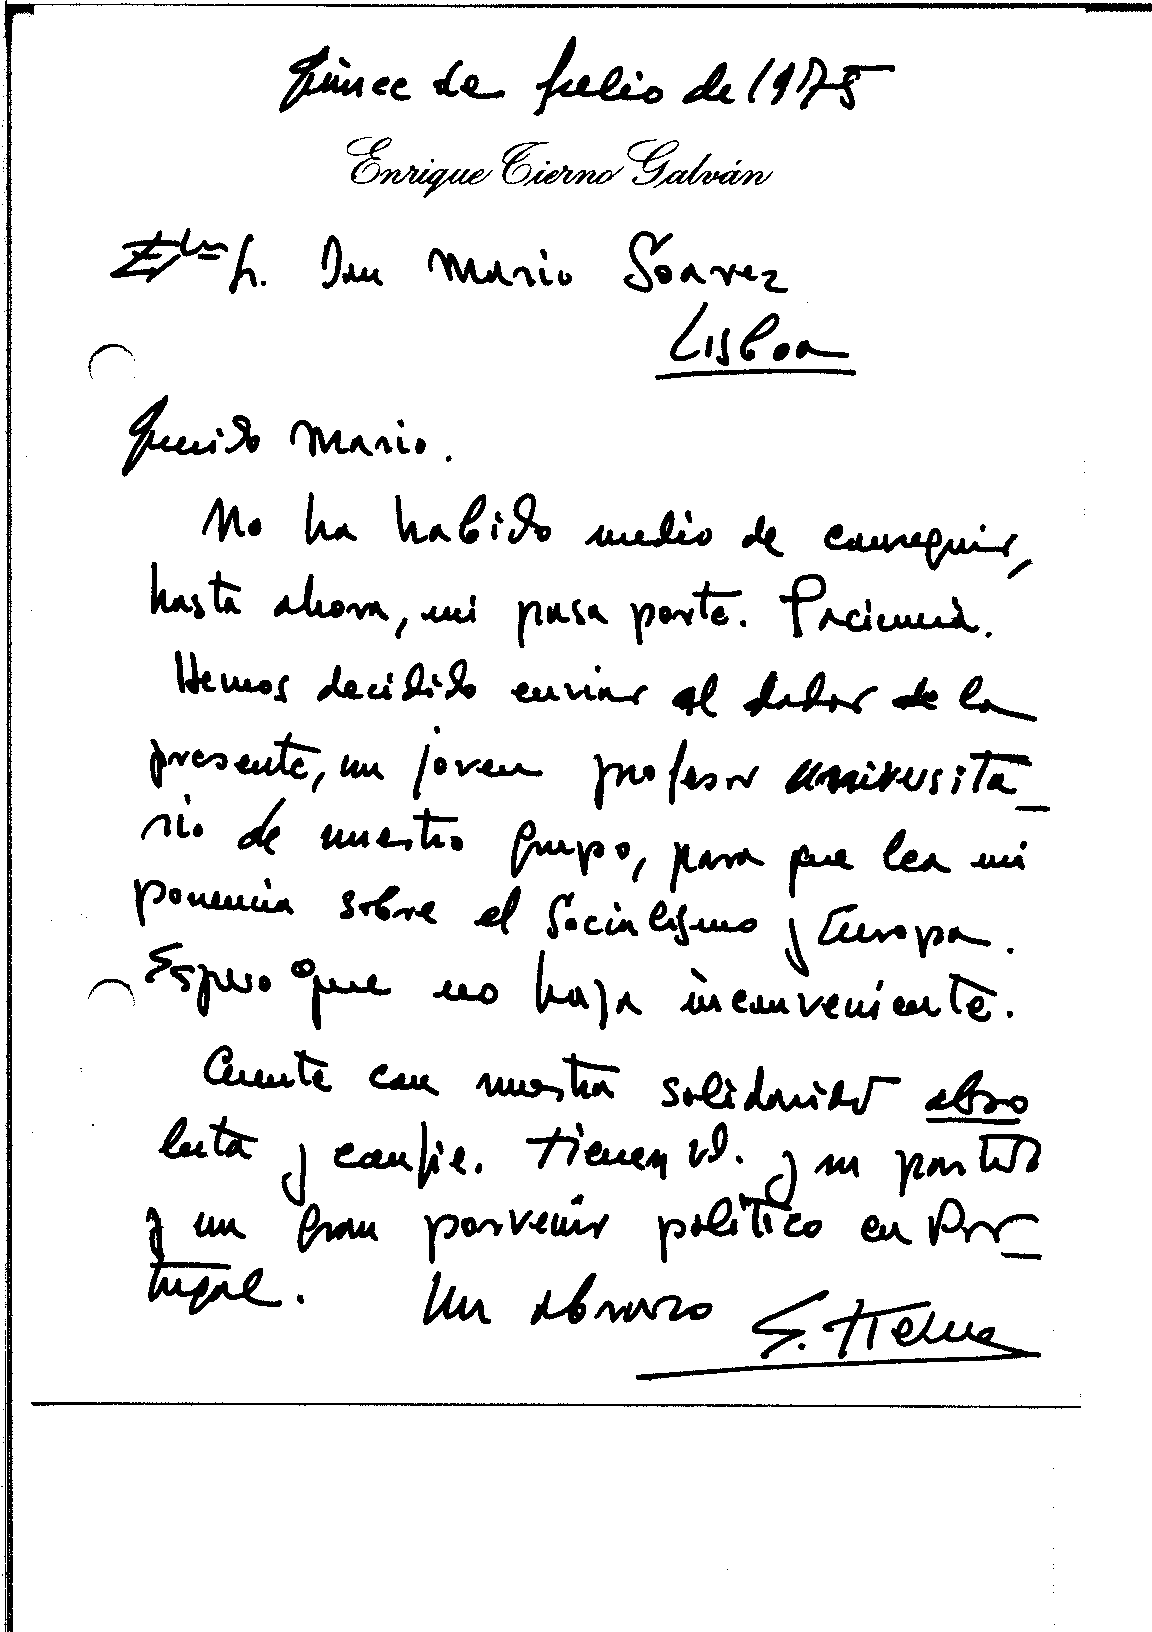 Quince de Julio de 1975
Enrique Tierno Galván
Sr. Don Mario Soarez
Lisboa
Querido Mario.
No ha habido medio de conseguir,
hasta ahora, mi pasaporte. Paciencia.
Hemos decidido enviar al dador de la
presente, un joven profesor universita_
rio de nuestro grupo, para que lea mi
ponencia sobre el Socialismo y Europa.
Espero que no haya inconveniente.
Cuente con nuestra solidaridad abso
luta y confie. Tienen vd. y su partido
y un gran porvenir politico en Por_
tugal. Un abrazo E. Tierno